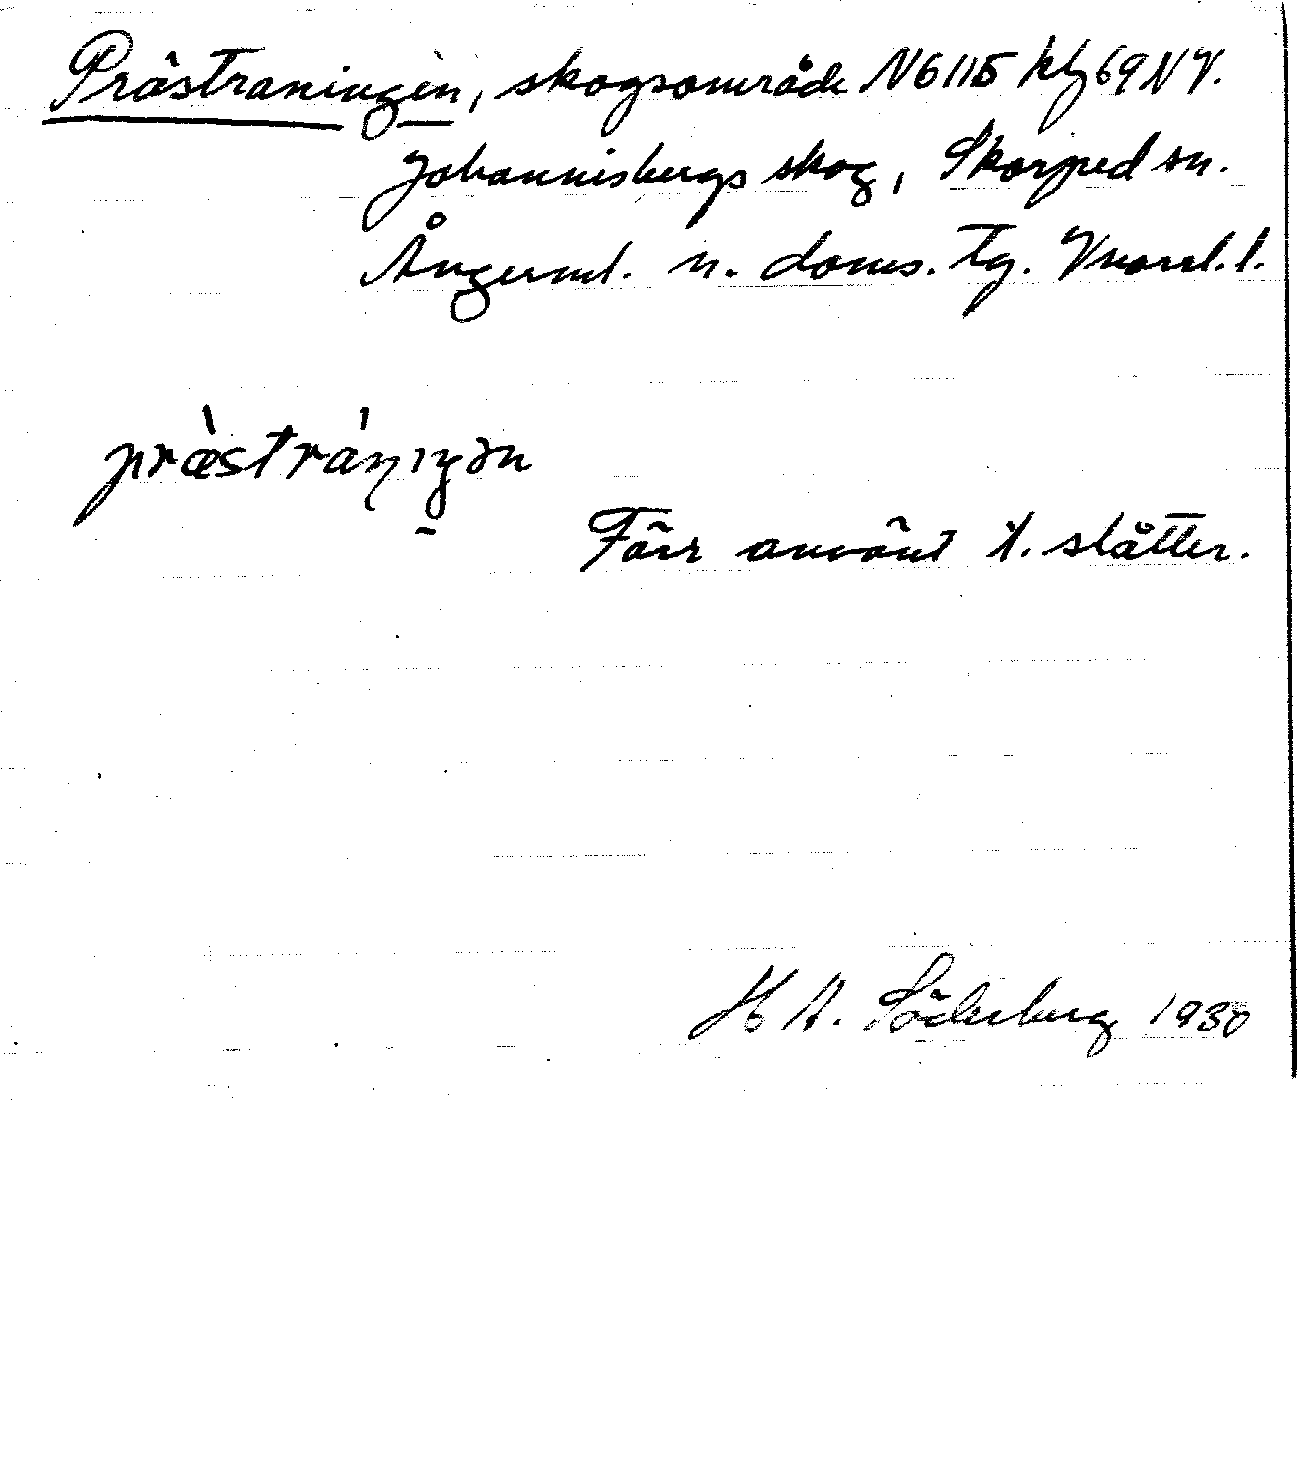 Prästraningen, skogsområde N6115 kbl 69 NV.
Johannisbergs skog, Skorped sn.
Ångerml. n. doms. Tg. Vnorrl. l.
præ̀strán̩ıŋən
Förr använt t. slåtter.
H A. Söderberg 1930